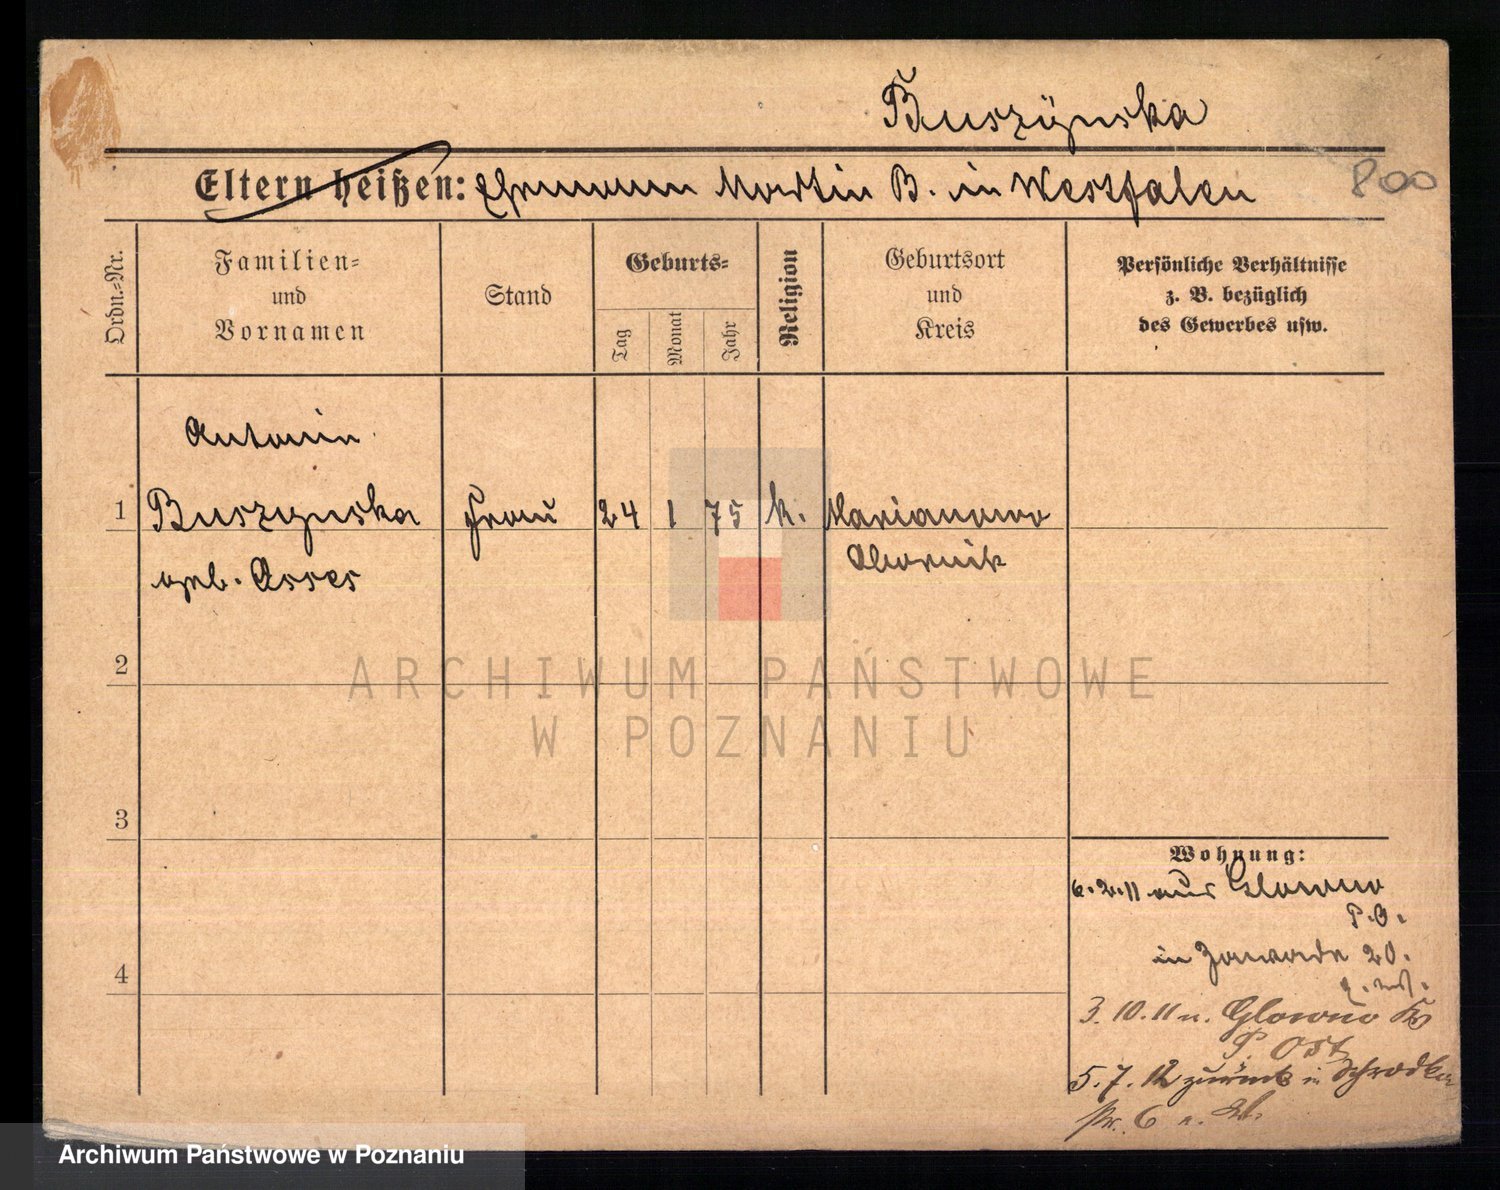 Buszÿnska
Eltern heißen: Ehemann Martin B. in Westfalen
800
Ordn.-Nr.
Familien-
und
Vornamen
Stand
Geburts-
Tag
Monat
Jahr
Religion
Geburtsort
und
Kreis
Persönliche Verhältnisse
z. B. bezüglich
des Gewerbes usw.
Antonin
1 Buszynska Frau 24 1 75 k. Marianowo
geb. Asses Obornik
2
ARCHIWUM PAŃSTWOWE
W POZNANIU
3
Wohnung:
6.2.11 aus Glowno
P.O.
in Zawade 20.
4
3.10.11 n. Glowno
P. Ost
5.7.12 zurück in Schrodka
6
Archiwum Państwowe w Poznaniu